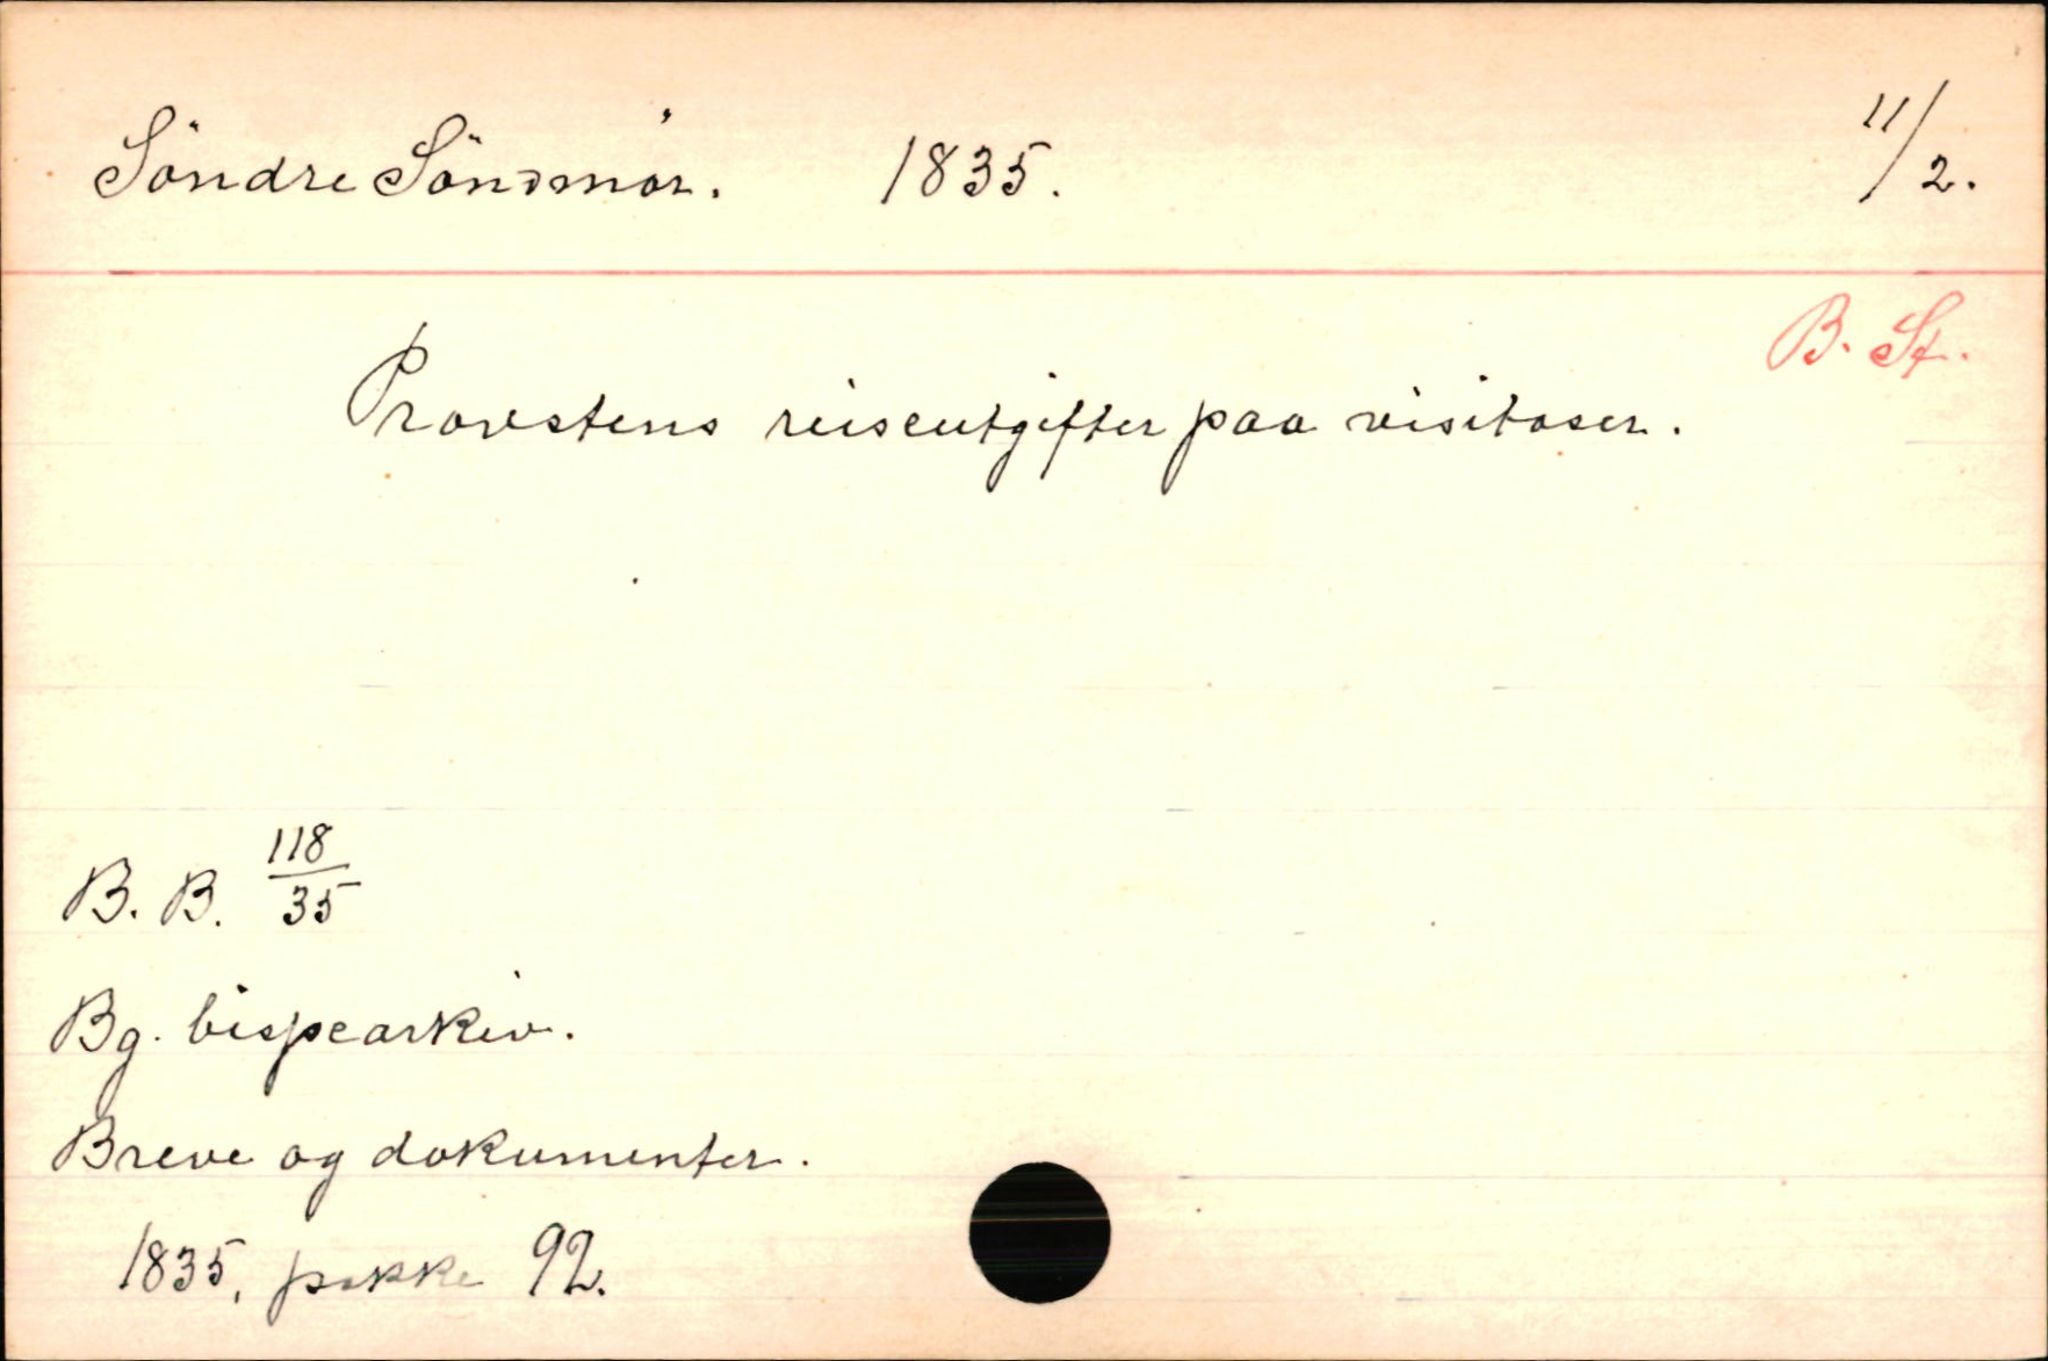 Söndre Söndmör. 1835. 11/2.
B. St.
Provstens reiseutgifter paa visitaser.
B. B. 118/35
Bg. bispearkiv.
Breve og dokumenter.
1835, pakke 92.